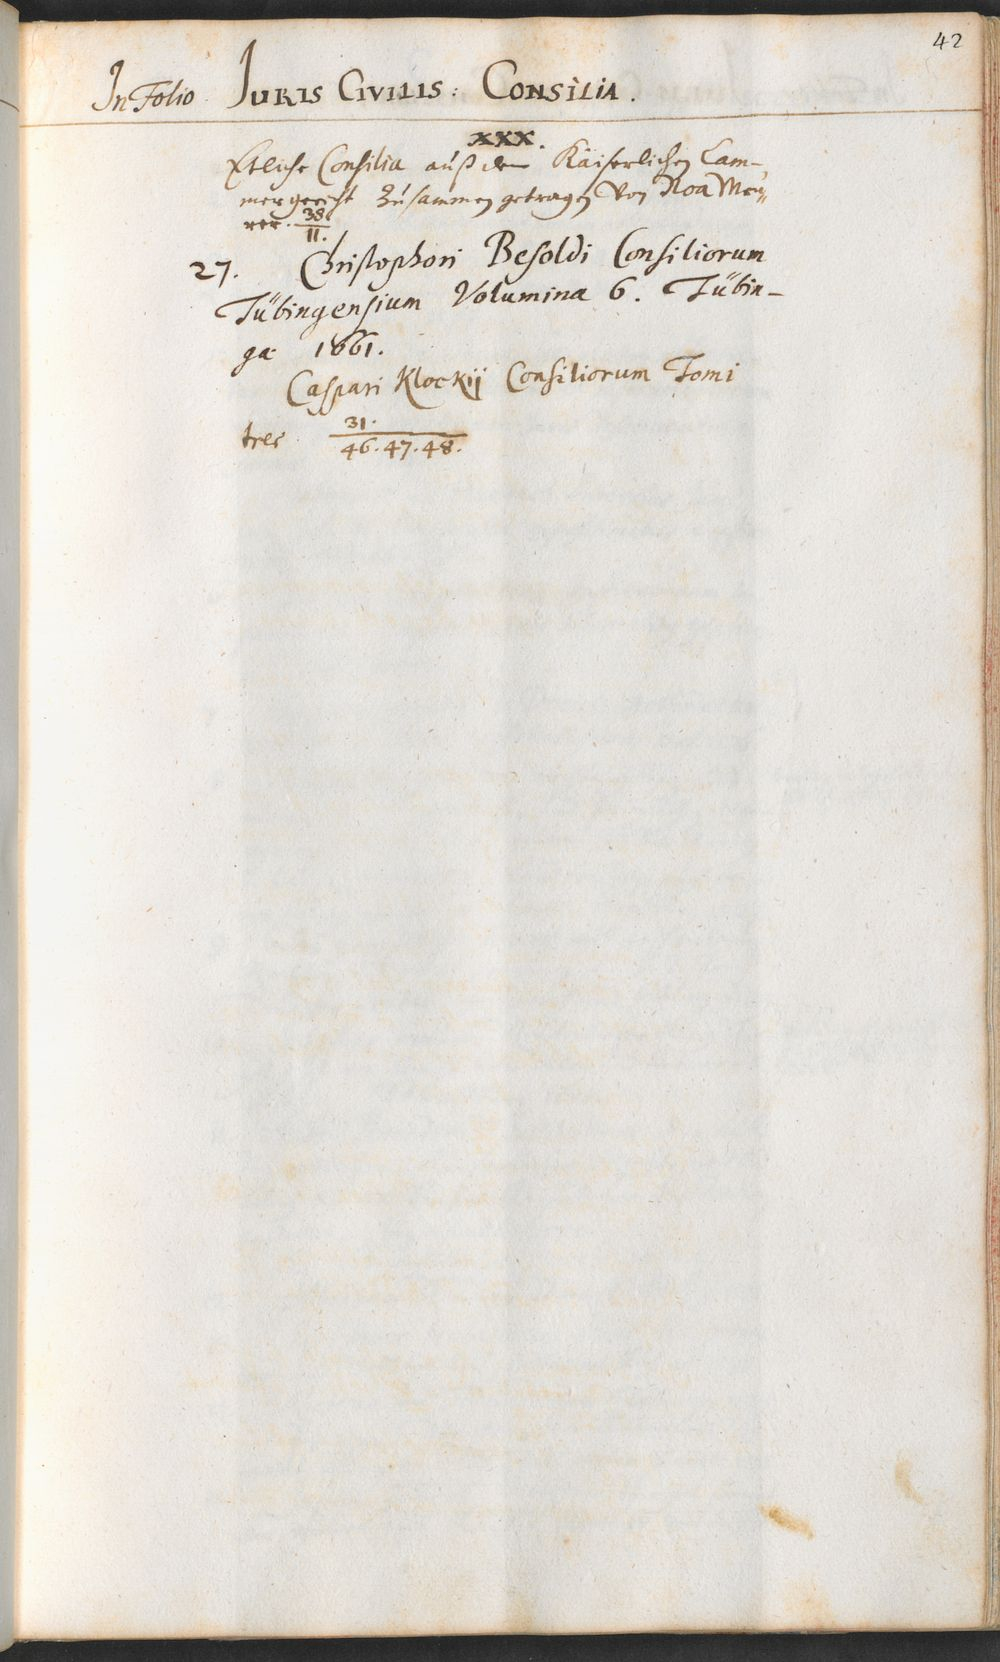 42
In Folio Juris Civilis: Consilia.
XXX.
Etliche Consilia auß dem Käiserlichen Cam-
mergericht zusammen getragen von Noa Meü=
rer. 38/11.
27. Christophori Besoldi Consiliorum
Tübingensium Volumina 6. Tübin-
gæ 1661.
Caspari Klockij Consiliorum Tomi
tres 31./46.47.48.